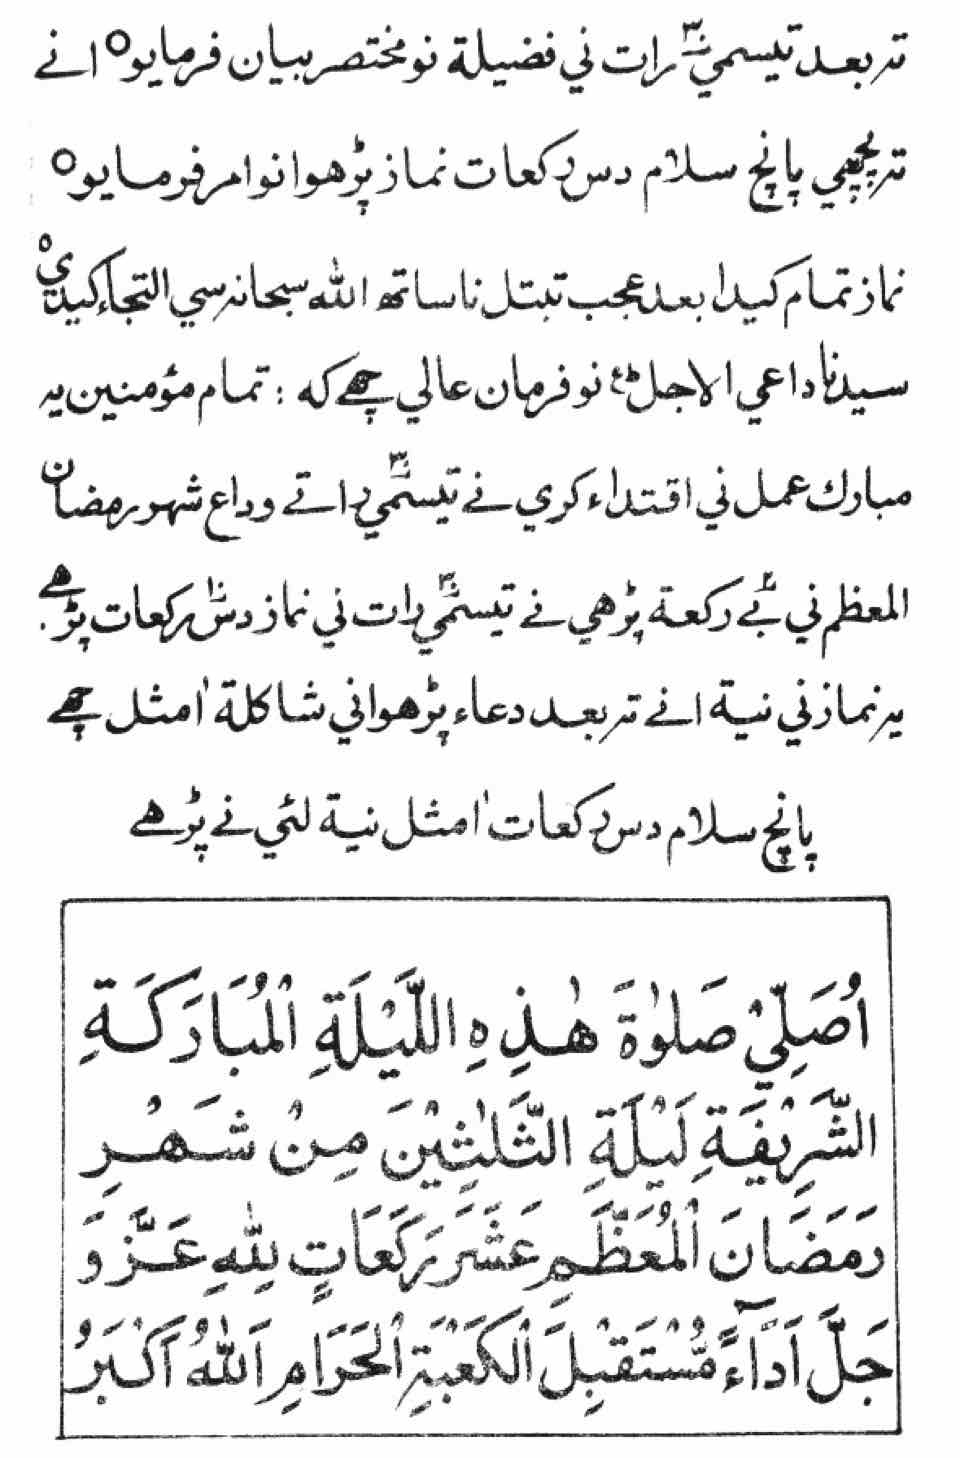 تہ بعد تيسمي۳۰ رات ني فضيلة نو مختصر بيان فرمايو○ انے
تہ پچھي پانچ سلام دس ركعات نماز پڑھوا نو امر فرمايو○
نماز تمام كيدا بعد عجب تبتل نا ساتھ اللّٰه سبحانہ سي التجاء كيدي○
سيدنا داعي الاجل طع نو فرمان عالي چھے كہ : تمام مؤمنين يہ
مبارك عمل ني اقتداء كري نے تيسمي۳۰ راتے وداع شهر رمضان
المعظم ني بے۲ ركعة پڑھي نے تيسمي۳۰ رات ني نماز دس۱۰ ركعات پڑھے.
يہ نماز ني نية انے تہ بعد دعاء پڑھواني شاكلة اٰمثل چھے
پانچ سلام دس ركعات اٰمثل نية لئي نے پڑھے
اُصَلِّيْ صَلوٰةَ هٰذِهِ اللَّيْلَةِ الْمُبَارَكَةِ
الشَّرِيْفَةِ لَيْلَةِ الثَّلٰثِيْنَ مِنْ شَهْرِ
رَمَضَانَ الْمُعَظَّمِ عَشَرَ رَكَعَاتٍ لِلّٰهِ عَزَّ وَ
جَلَّ اَدَآءً مُّسْتَقْبِلَ الْكَعْبَةِ الْحَرَامِ اَللّٰهُ اَكْبَرُ